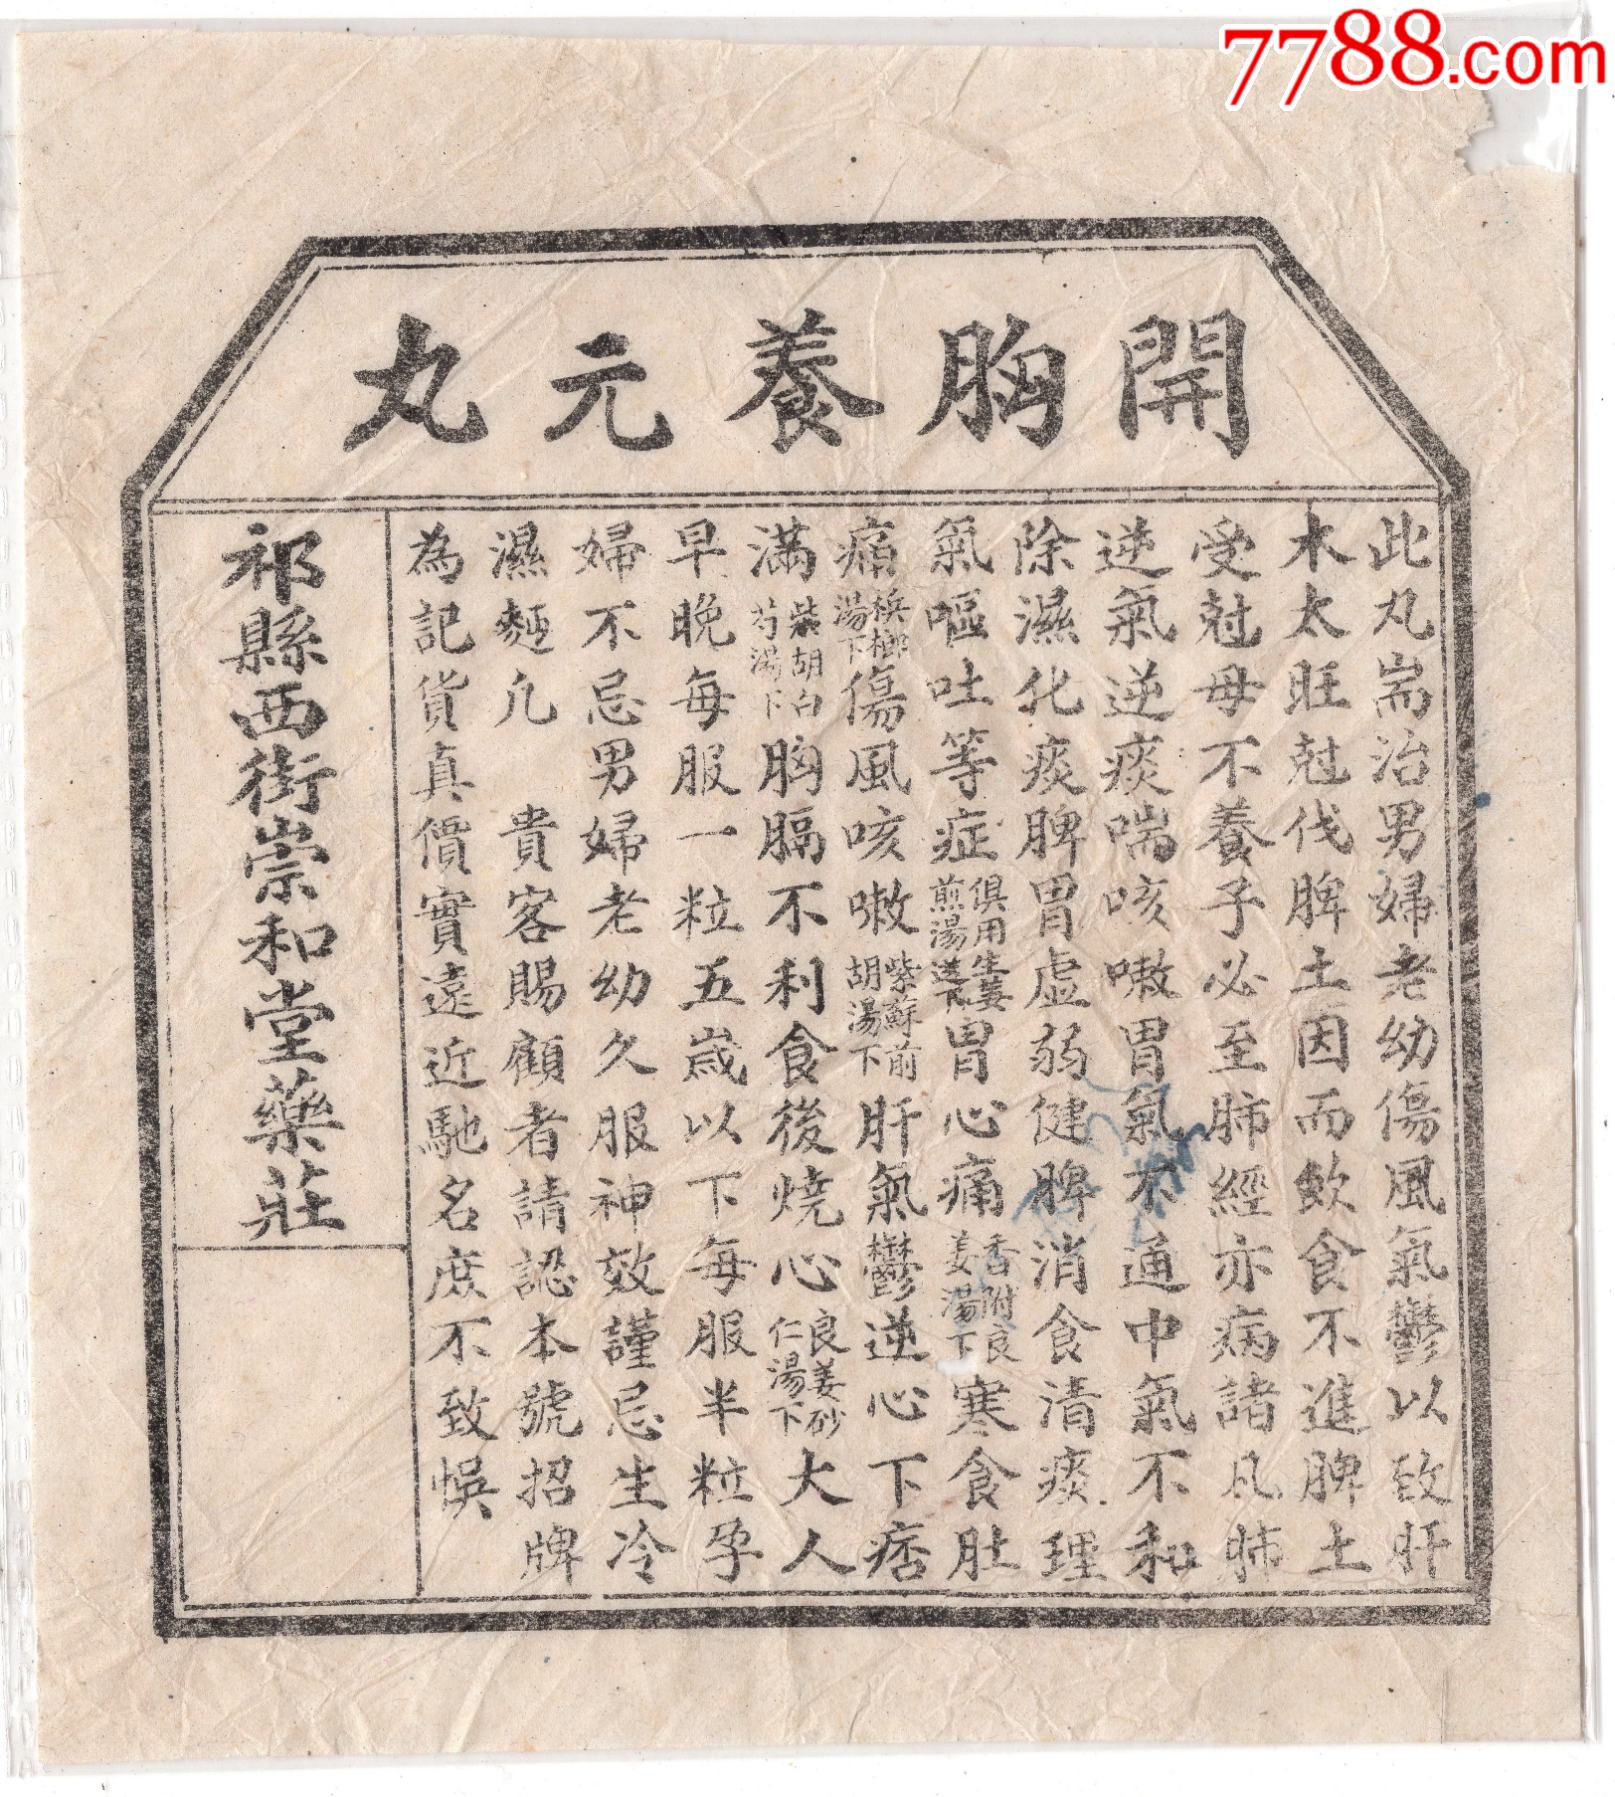 7788.com
開胸養元丸
此丸耑治男婦老幼傷風氣鬱以致肝
木太旺尅伐脾土因而飲食不進脾土
受尅母不養子必至肺經亦病諸凡肺
逆氣逆痰喘咳嗽胃氣不通中氣不和
除濕化痰脾胃虛弱健脾消食清痰理
氣嘔吐等症俱用生姜煎湯送下胃心痛香附良姜湯下寒食肚
痛梹榔湯下傷風咳嗽紫蘇前胡湯下肝氣鬱逆心下痞
滿柴胡白芍湯下胸膈不利食後燒心良姜砂仁湯下大人
早晚每服一粒五歲以下每服半粒孕
婦不忌男婦老幼久服神效謹忌生冷
濕麵凡 貴客賜顧者請認本號招牌
為記貨真價實遠近馳名庶不致悞
祁縣西街崇和堂藥莊